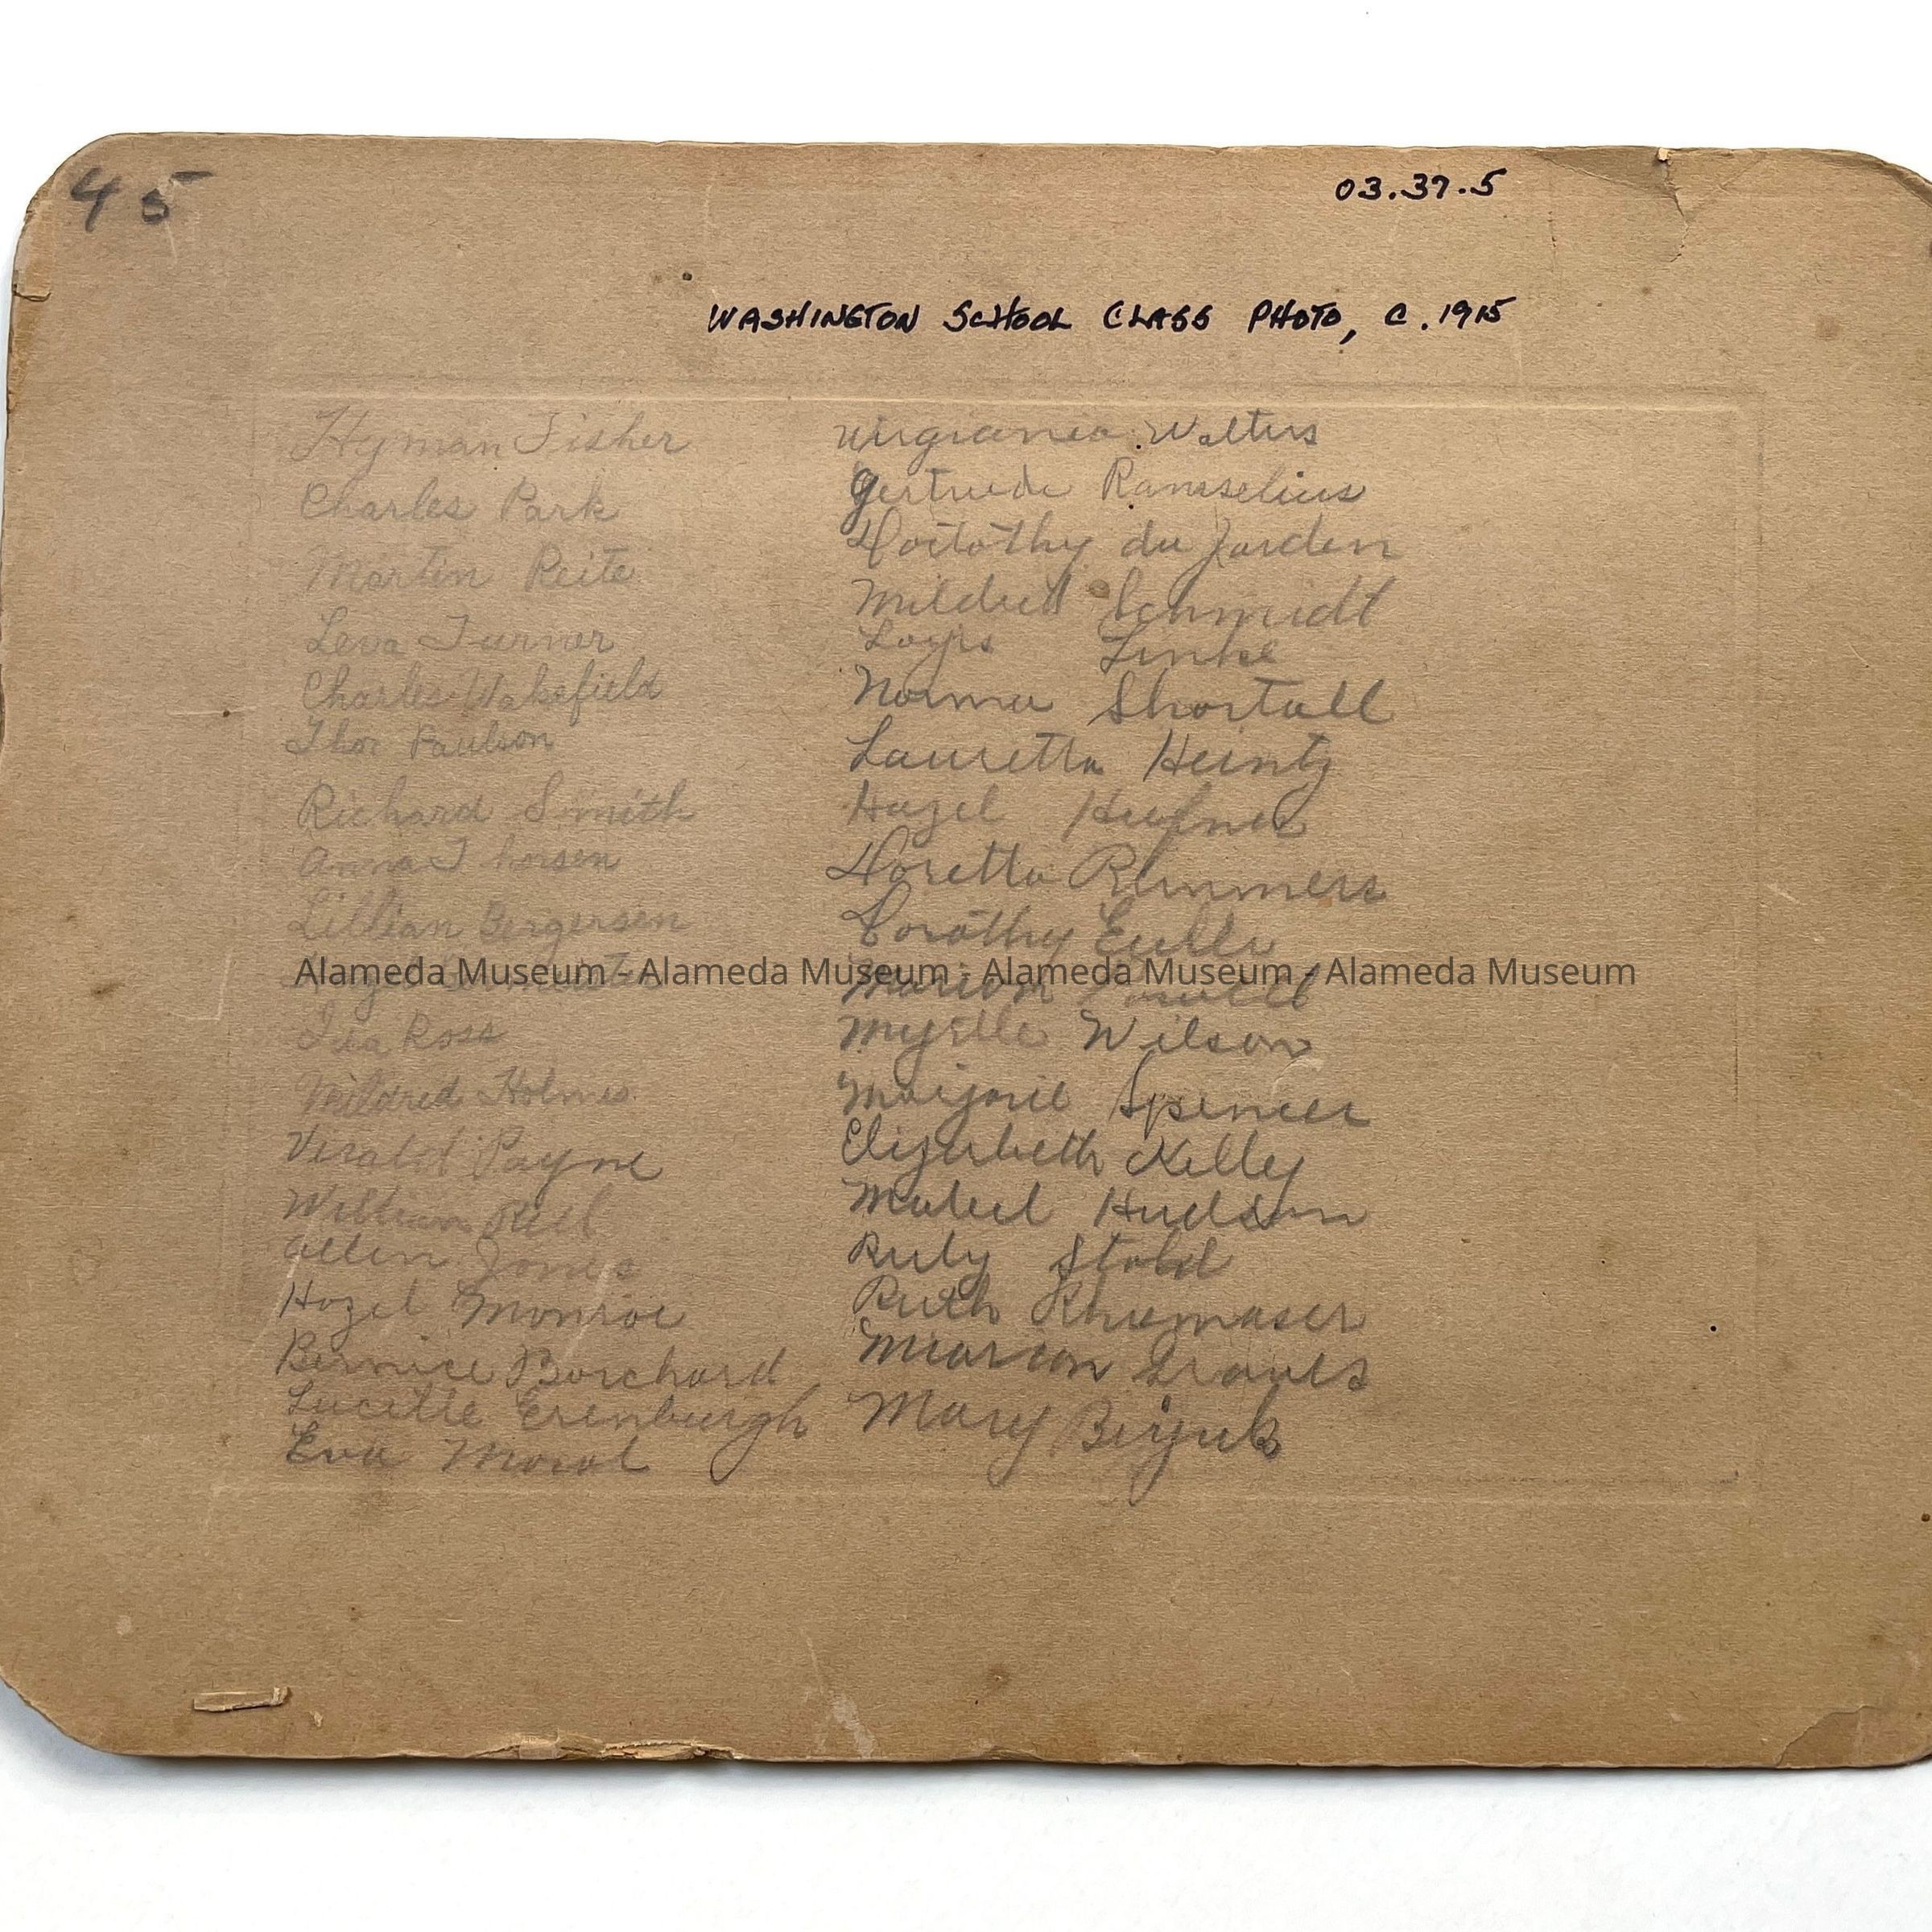 45
03.37.5
WASHINGTON SCHOOL CLASS PHOTO, C. 1915
Hyman Fisher
Charles Park
Martin Reite
Leva Turner
Charles Wakefield
Thor Paulson
Richard Smith
Anna Thorsen
Lillian Bergersen
Ida Ross
Mildred Holmes
Verald Payne
William
Allen Jones
Hazel Monroe
Bernice Borchard
Lucille Erenburgh
Eva Moral
Walters
Gertrude Ramselius
du Jarden
Mildred Schmidt
Linke
Norma Shortall
Lauretta Heintz
Hazel
Loretta Remmers
Dorothy
Alameda Museum - Alameda Museum - Alameda Museum - Alameda Museum
Marion
Myrtle Wilson
Marjorie Spencer
Elizabeth Kelly
Mabel Hudson
Ruby
Ruth
Marion
Mary